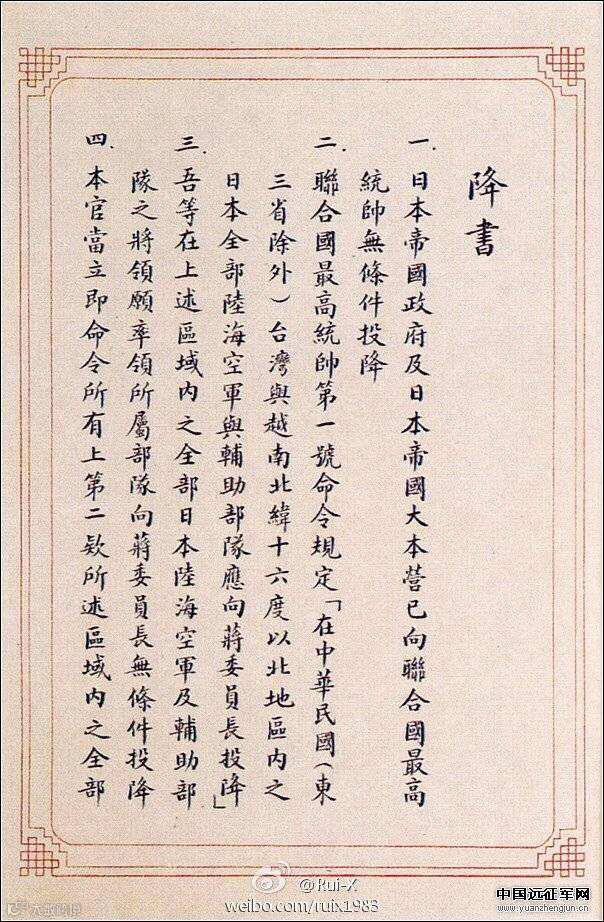 降書
一.日本帝國政府及日本帝國大本營已向聯合國最高
統帥無條件投降
二.聯合國最高統帥第一號命令規定「在中華民國（東
三省除外）台灣與越南北緯十六度以北地區內之
日本全部陸海空軍與輔助部隊應向蔣委員長投降」
三.吾等在上述區域內之全部日本陸海空軍及輔助部
隊之將領願率領所屬部隊向蔣委員長無條件投降
四.本官當立即命令所有上第二欵所述區域內之全部
@Rui-X
weibo.com/ruix1983
中国远征军网
www.yuanzhengjun.cn